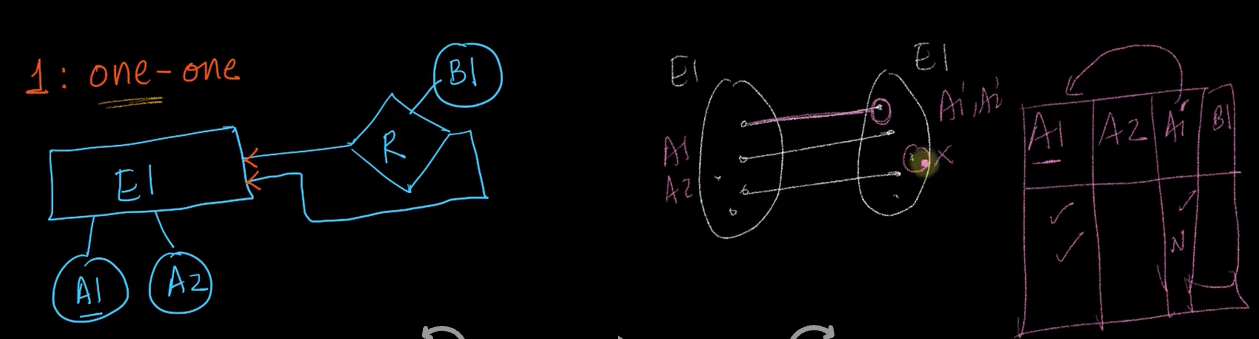 1: one-one
B1
R
E1
A1
A2
E1
E1
A1
A2
A1', A2'
x
A1 A2 A1' B1
N